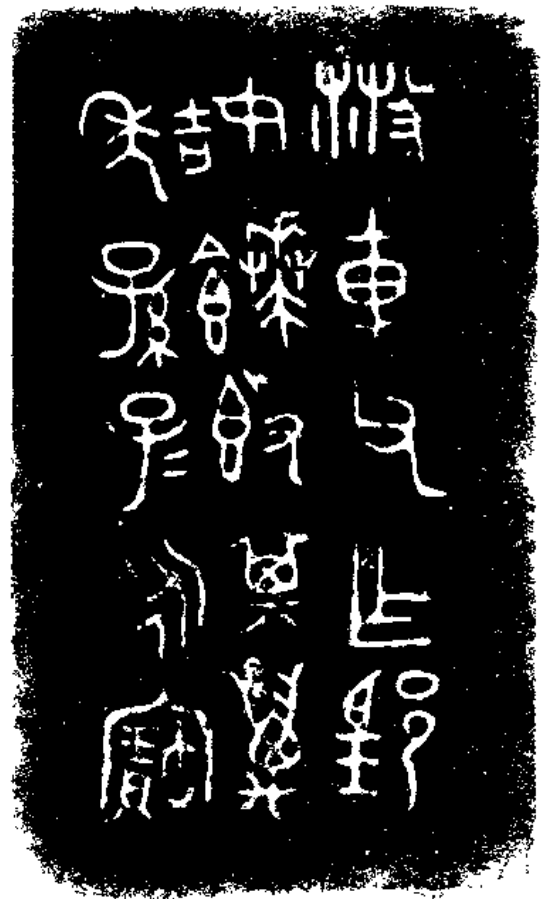 散車父乍䣙
姞饙簋其萬
年孫子=永寶